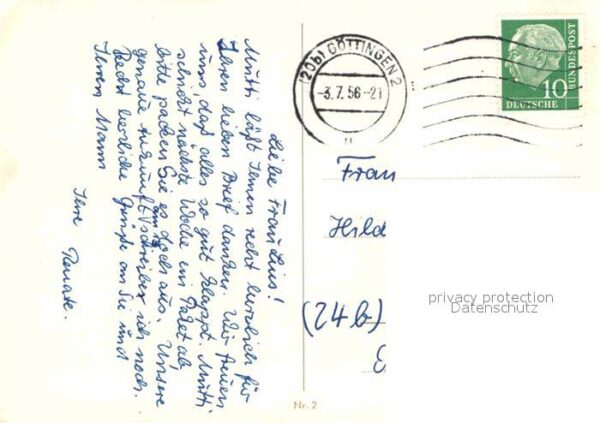 Liebe Frau Lins!
Mutti läßt Ihnen recht herzlich für
Ihren lieben Brief danken. Wir freuen
uns daß alles so gut klappt. Mutti
schickt nächste Woche ein Paket ab,
bitte packen Sie es doch aus. Unsere
genaue Ankunft schreiben wir noch.
Recht herzliche Grüße an Sie und
Ihren Mann
Ihre Renate.
(20b) GÖTTINGEN 2
-3.7.56-21
10
DEUTSCHE
BUNDESPOST
Frau
Hild
(24b)
privacy protection
Datenschutz
Nr. 2